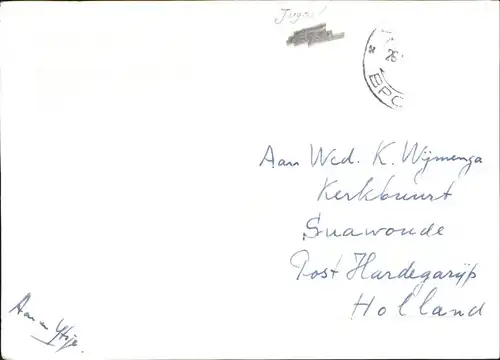 Jugosl
26
BPC
Aan Wed. K. Wijmenga
Kerkbuurt
Suawoude
Post Hardegarijp
Holland